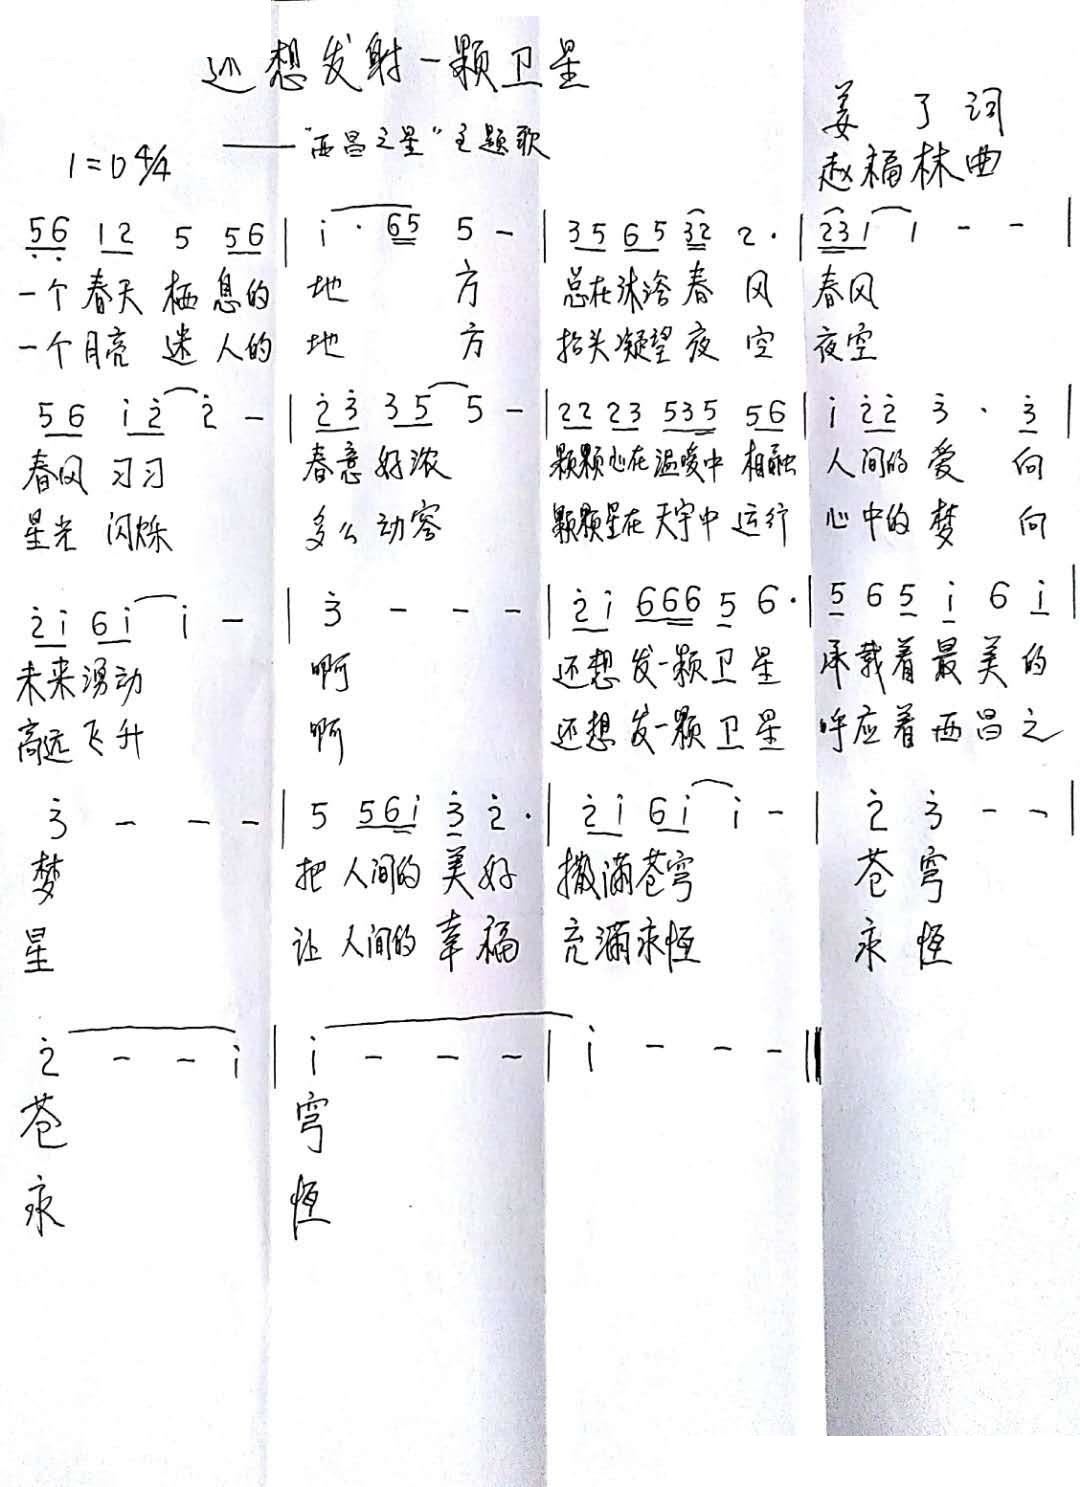 还想发射一颗卫星
——"西昌之星"主题歌
姜了词
1=D 4/4
赵福林曲
56 12 5 56 | i · 65 5 - | 35 65 32 2 · | 231 1 - - |
一个春天栖息的 地 方 总在沐浴春风 春风
一个月亮迷人的 地 方 抬头凝望夜空 夜空
56 i2 2 - | 23 35 5 - | 22 23 535 56 | i 22 3 · 3 |
春风习习 春意好浓 颗颗心在温暖中相融 人间的爱向
星光闪烁 多么动容 颗颗星在天宇中运行 心中的梦向
2i 6i i - | 3 - - - | 2i 666 5 6 · | 5 6 5 i 6 i |
未来湧动 啊 还想发一颗卫星 承载着最美的
高远飞升 啊 还想发一颗卫星 呼应着西昌之
3 - - - | 5 56i 3 2 · | 2i 6i i - | 2 3 - - |
梦 把人间的美好 撒满苍穹 苍穹
星 让人间的幸福 充满永恒 永恒
2 - - i | i - - - | i - - - ||
苍 穹
永 恒